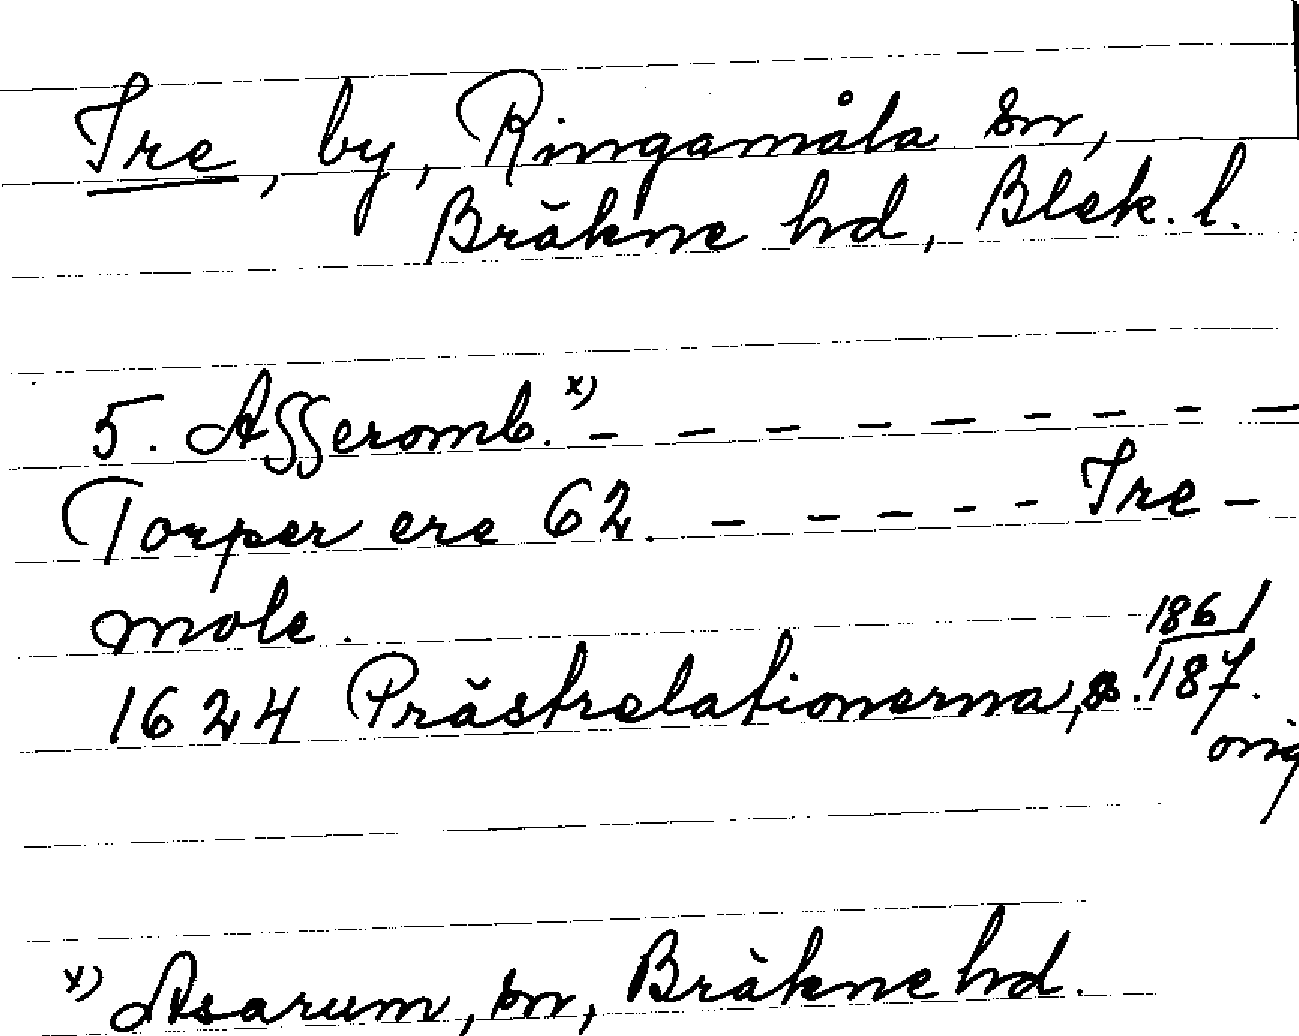 Tre, by, Ringamåla sn,
Bräkne hd, Blek. l.
5. Asseromb. x) – – – – – – – – –
Torper ere 62. – – – – – Tre –
mole.
1624 Prästrelationerna, s. 186/
187.
orig
x) Asarum, sn, Bräkne hd.